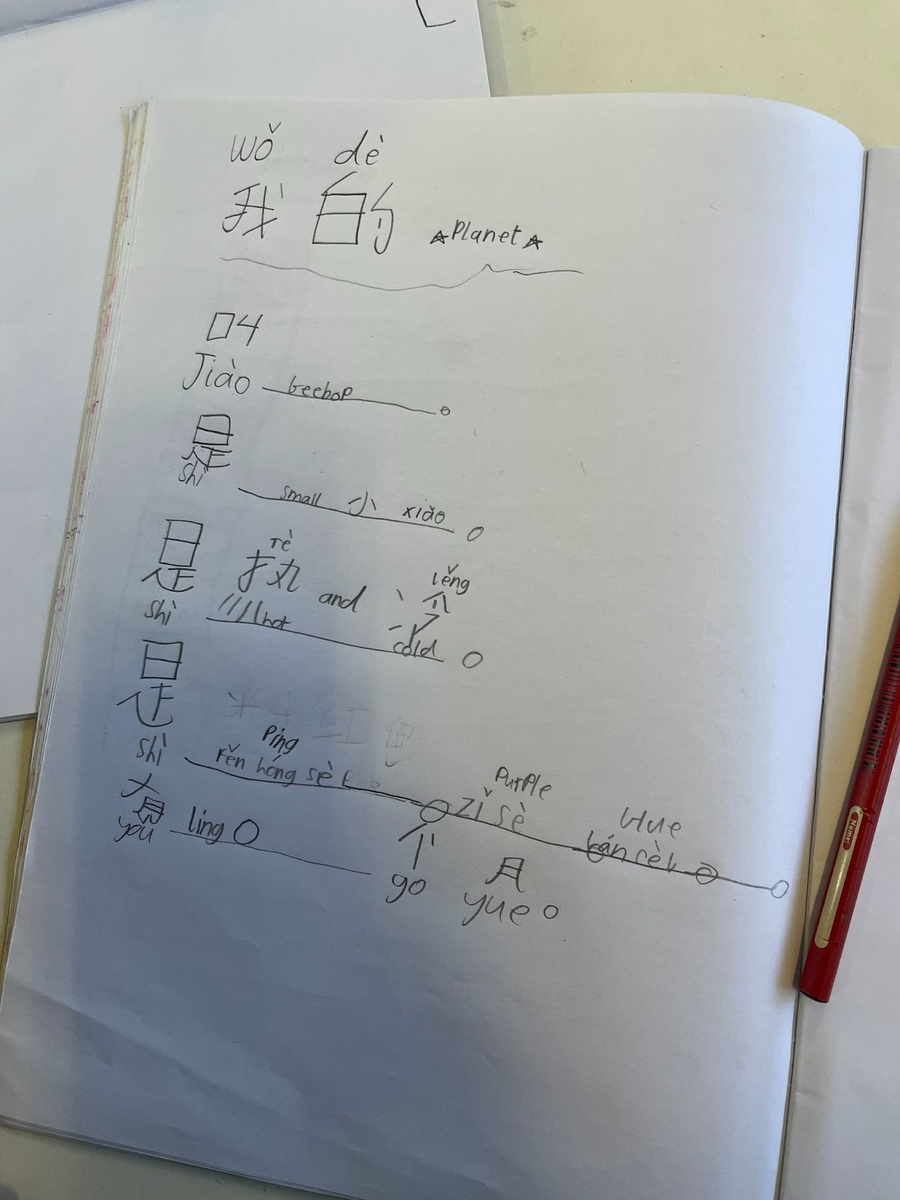 wǒ dè
我 的 ☆Planet☆
叫
Jiào beebop 。
是
shì small 小 xiǎo 。
是 rè 热 and lěng 冷
shì hot cold 。
是
shì Ping fěn hóng sè 。 Purple zǐ sè Blue lán sè 。
有
you ling 。 个 月
go yue 。